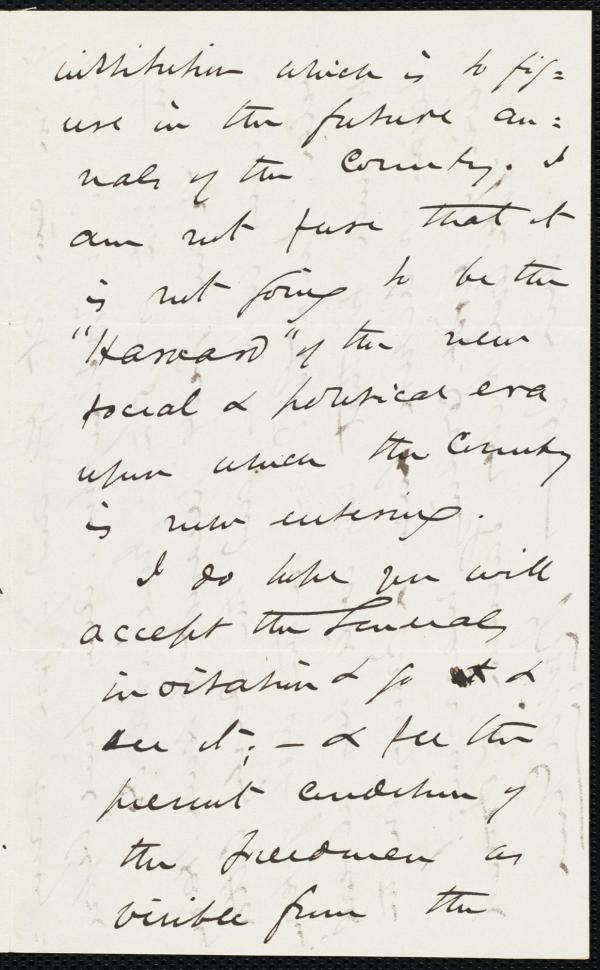 institution which is to fig=
ure in the future an=
nals of the Country. I
am not sure that it
is not going to be the
"Harvard" of the new
social & political era
upon which the Country
is now entering.
I do hope you will
accept the Generals
invitation & go &
see it; — & see the
present condition of
the freedmen as
visible from the